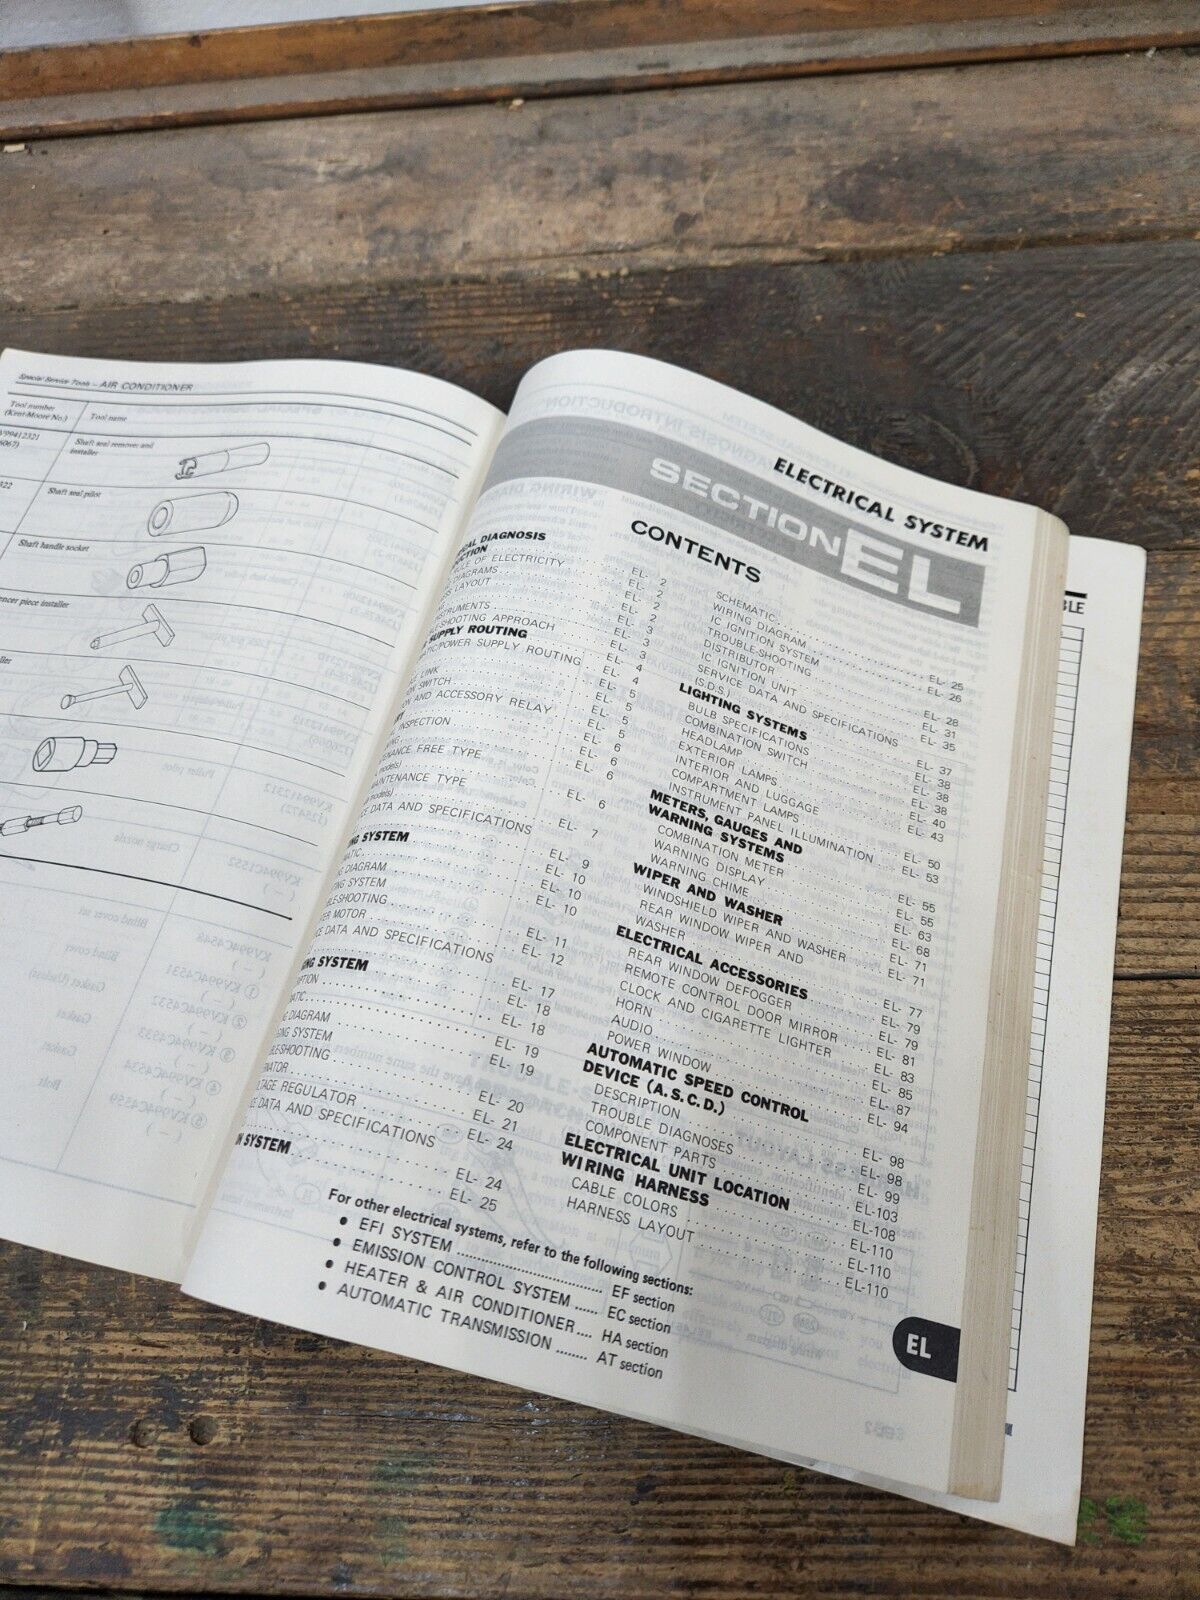 Special Service Tools – AIR CONDITIONER
Tool number
(Kent-Moore No.)
Tool name
V99412321
Shaft seal remover and
installer
Shaft seal pilot
Shaft handle socket
encer piece installer
ELECTRICAL SYSTEM
SECTION EL
CONTENTS
CAL DIAGNOSIS
LE OF ELECTRICITY EL- 2
DIAGRAMS EL- 2
LAYOUT EL- 2
EL- 3
STRUMENTS EL- 3
E-SHOOTING APPROACH EL- 3
SUPPLY ROUTING EL- 4
ATIC/POWER SUPPLY ROUTING EL- 4
E LINK EL- 5
ON SWITCH EL- 5
ON AND ACCESSORY RELAY EL- 5
RY EL- 6
INSPECTION EL- 6
NG
NANCE FREE TYPE
models) EL- 6
MAINTENANCE TYPE
models) EL- 7
CE DATA AND SPECIFICATIONS
NG SYSTEM EL- 9
MATIC EL- 10
DIAGRAM EL- 10
TING SYSTEM EL- 10
BLESHOOTING EL- 11
TER MOTOR EL- 12
ICE DATA AND SPECIFICATIONS EL- 17
ING SYSTEM EL- 18
IPTION EL- 18
MATIC EL- 19
NG DIAGRAM EL- 19
GING SYSTEM
BLESHOOTING EL- 20
RNATOR EL- 21
LTAGE REGULATOR EL- 24
CE DATA AND SPECIFICATIONS EL- 24
ON SYSTEM EL- 25
SCHEMATIC EL- 25
WIRING DIAGRAM EL- 26
IC IGNITION SYSTEM
TROUBLE-SHOOTING EL- 28
DISTRIBUTOR EL- 31
IC IGNITION UNIT EL- 35
SERVICE DATA AND SPECIFICATIONS
(S.D.S.) EL- 37
LIGHTING SYSTEMS EL- 38
BULB SPECIFICATIONS EL- 38
COMBINATION SWITCH EL- 38
HEADLAMP EL- 40
EXTERIOR LAMPS EL- 43
INTERIOR AND LUGGAGE
COMPARTMENT LAMPS EL- 50
INSTRUMENT PANEL ILLUMINATION EL- 53
METERS, GAUGES AND
WARNING SYSTEMS EL- 55
COMBINATION METER EL- 55
WARNING DISPLAY EL- 63
WARNING CHIME EL- 68
WIPER AND WASHER EL- 71
WINDSHIELD WIPER AND WASHER EL- 71
REAR WINDOW WIPER AND
WASHER EL- 77
ELECTRICAL ACCESSORIES EL- 79
REAR WINDOW DEFOGGER EL- 79
REMOTE CONTROL DOOR MIRROR EL- 81
CLOCK AND CIGARETTE LIGHTER EL- 83
HORN EL- 85
AUDIO EL- 87
POWER WINDOW EL- 94
AUTOMATIC SPEED CONTROL
DEVICE (A.S.C.D.) EL- 98
DESCRIPTION EL- 98
TROUBLE DIAGNOSES EL- 99
COMPONENT PARTS EL-103
ELECTRICAL UNIT LOCATION EL-108
WIRING HARNESS EL-110
CABLE COLORS EL-110
HARNESS LAYOUT EL-110
For other electrical systems, refer to the following sections:
• EFI SYSTEM EF section
• EMISSION CONTROL SYSTEM EC section
• HEATER & AIR CONDITIONER HA section
• AUTOMATIC TRANSMISSION AT section
EL
BLE